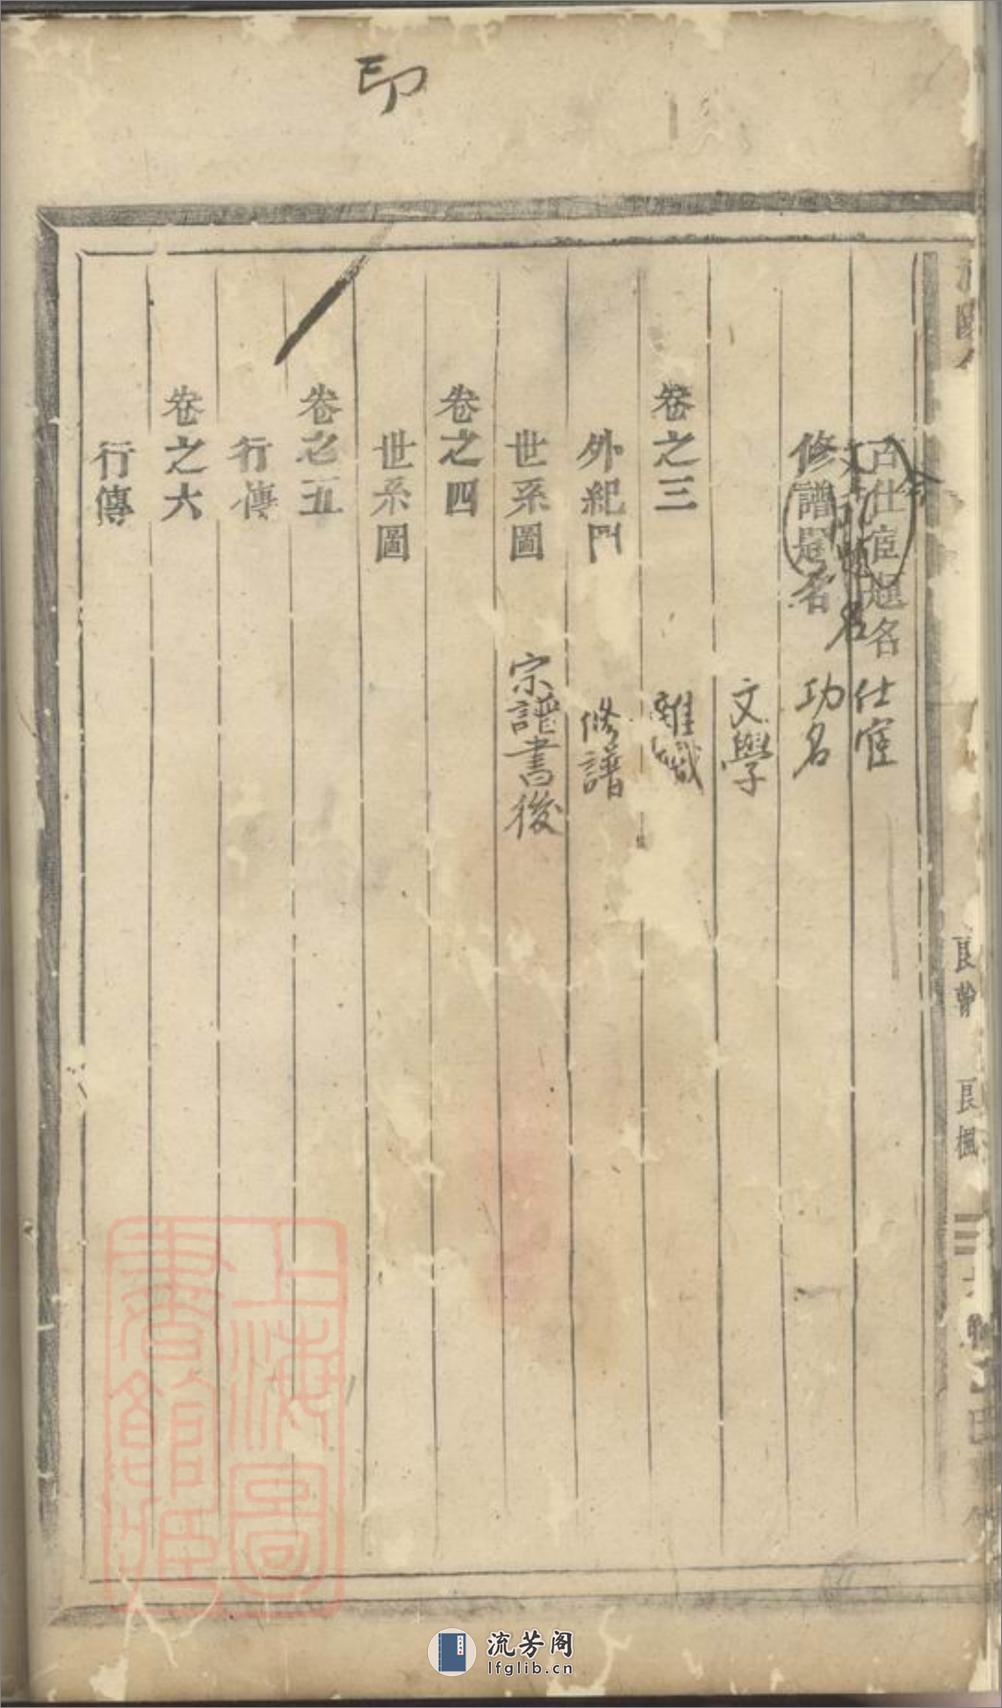 印
古仕宦題名 仕宦
題名 功名
修譜題名
文學
卷之三
雜識
外紀門 修譜
世系圖 宗譜書後
卷之四
世系圖
卷之五
行傳
卷之六
行傳
良幹 良楓
上海圖書館藏
流芳阁
lfglib.cn